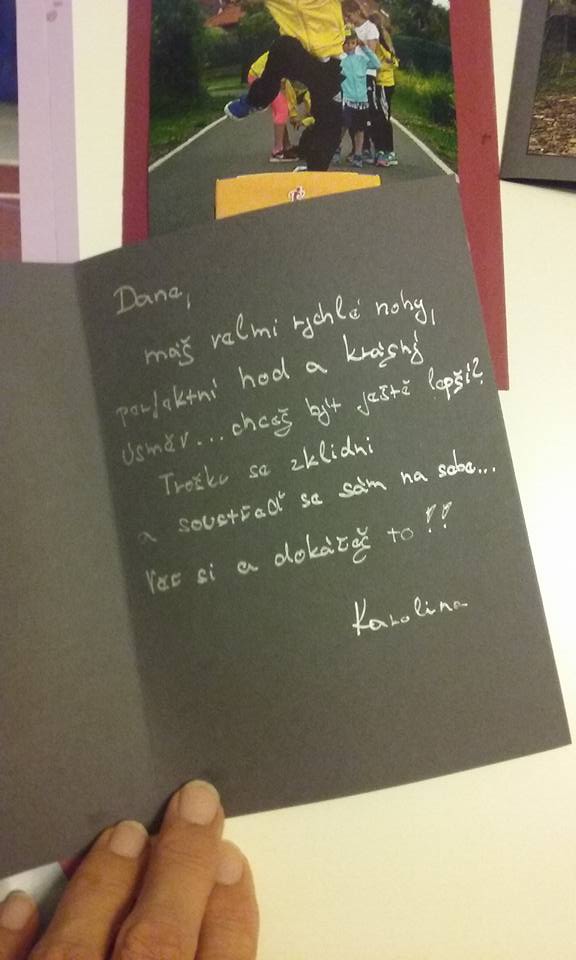 Dane,
máš velmi rychlé nohy,
perfaktní hod a krásný
úsměv... chceš být ještě lepší?
Trošku se zklidni
a soustřeď se sám na sebe...
Věř si a dokážeš to!!
Karolina